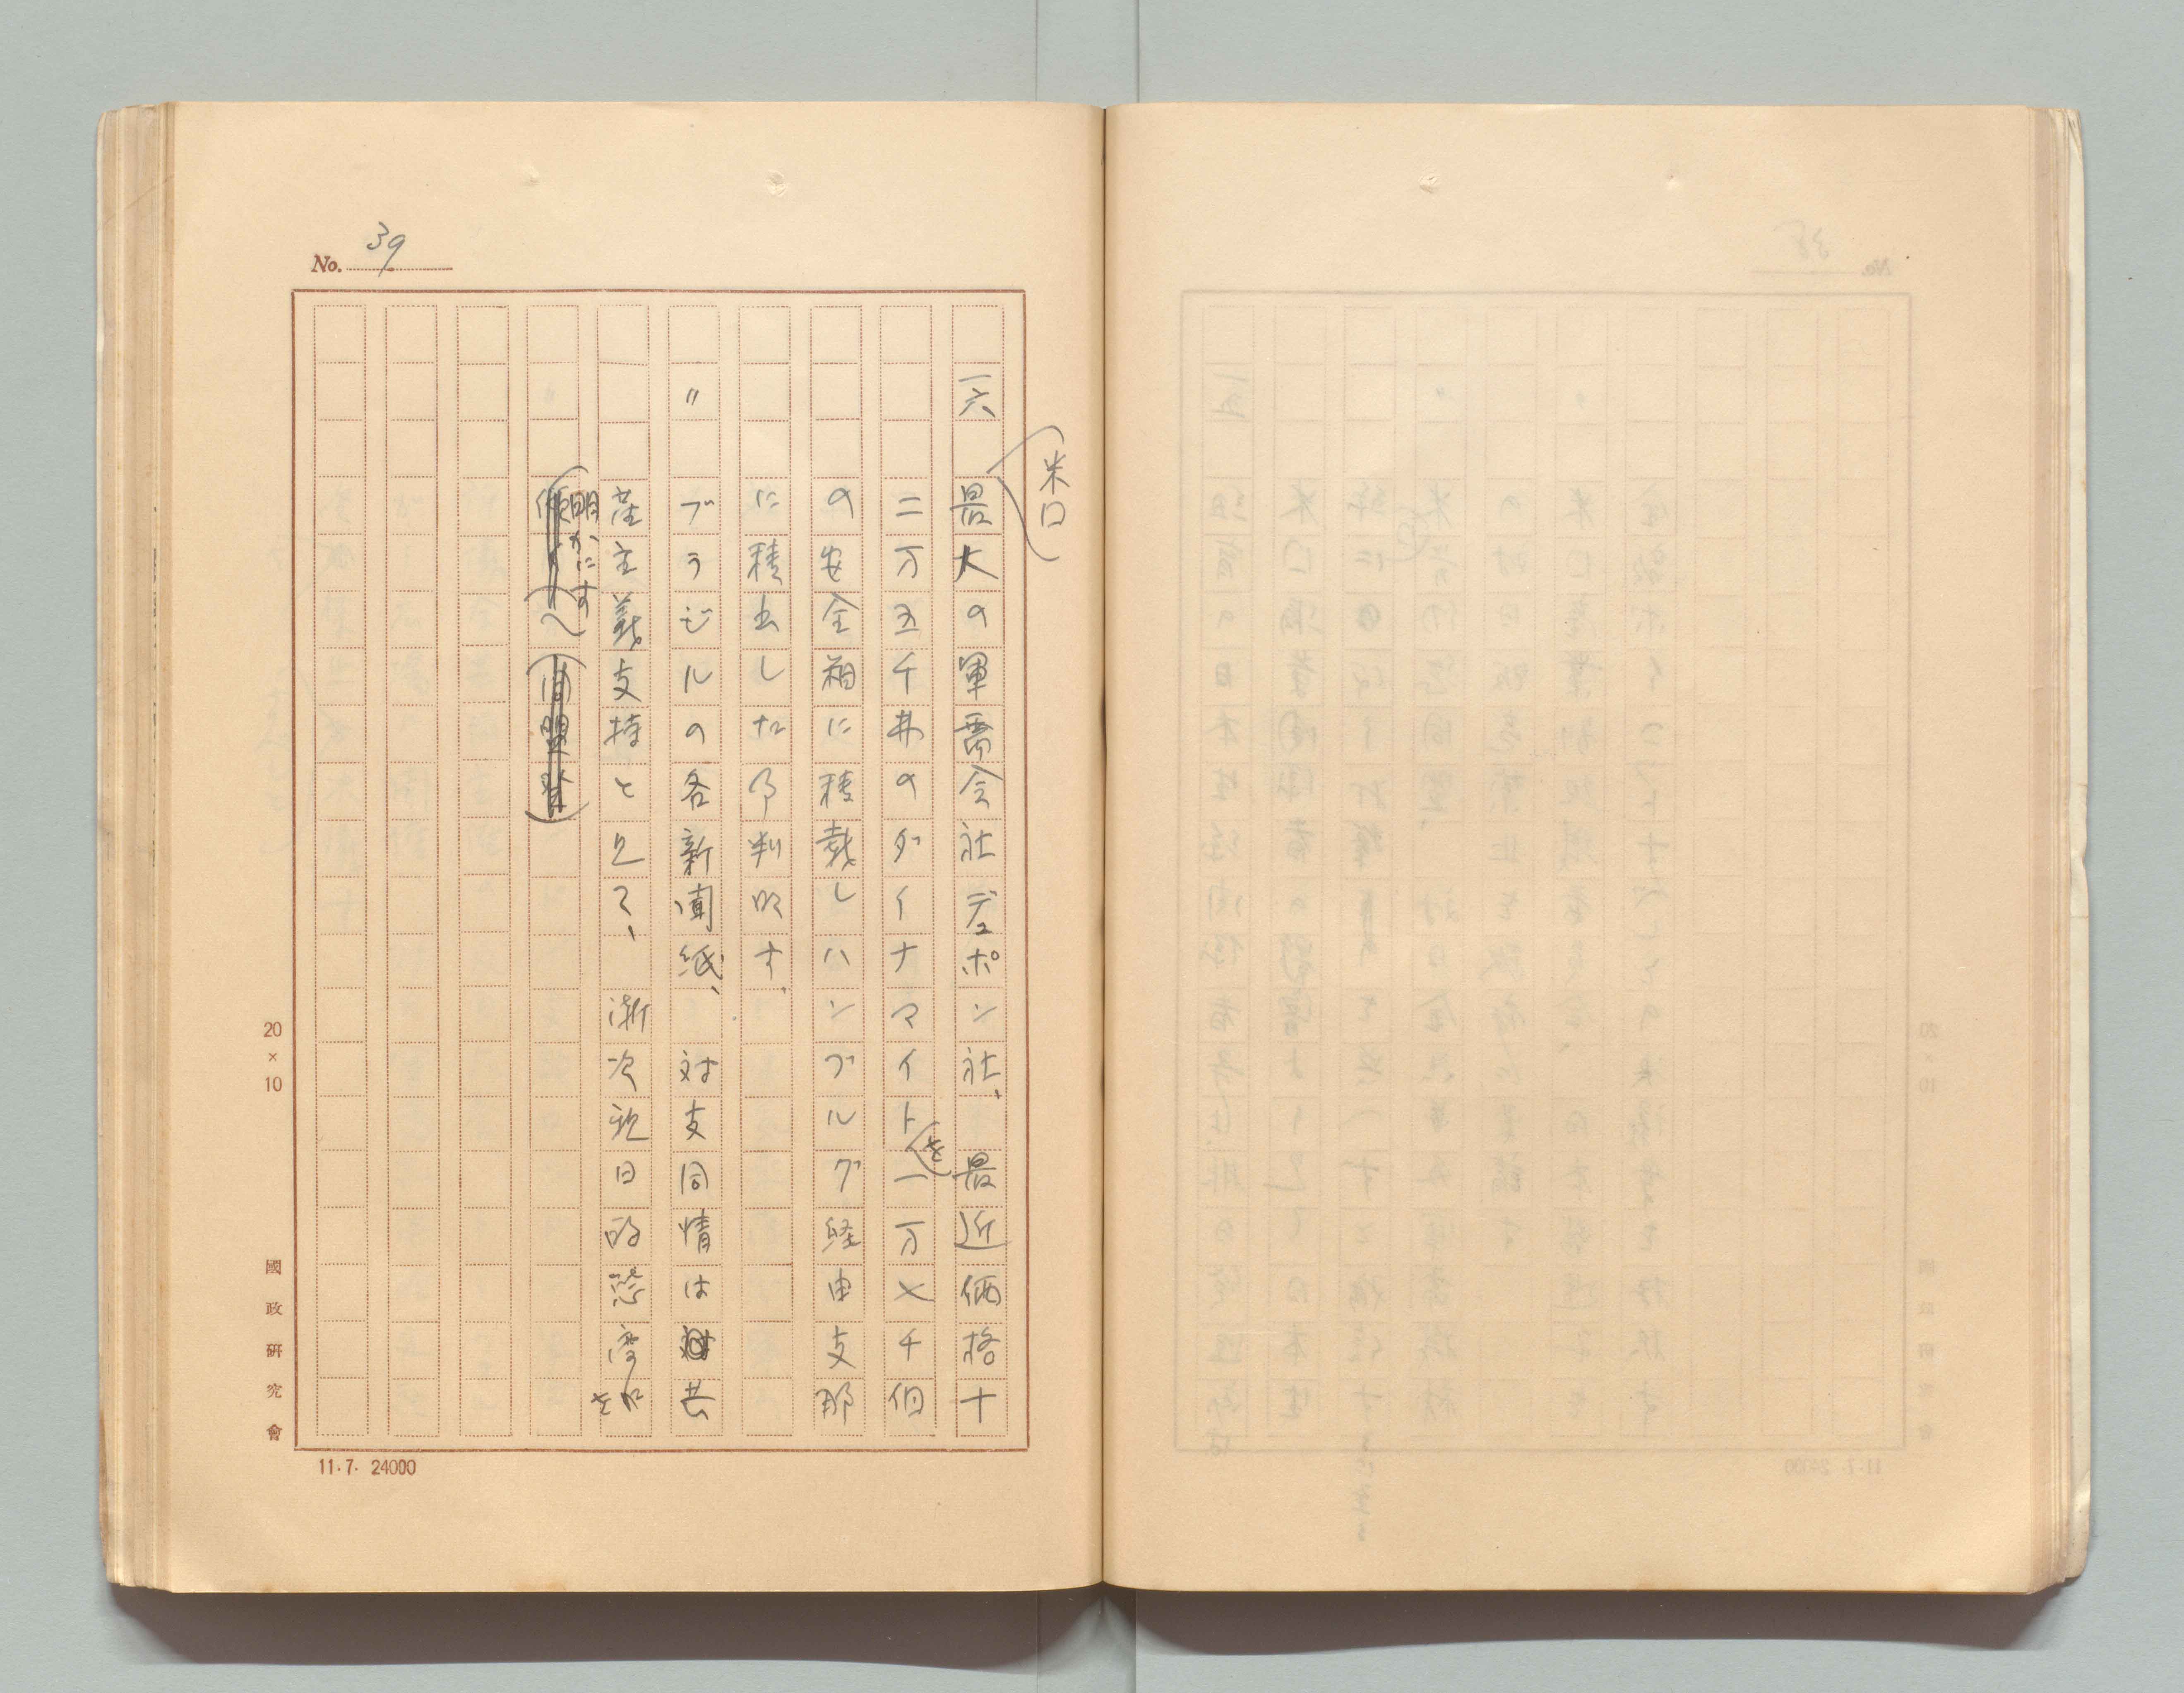 No. 39
米口
一六 最大の軍需会社デュポン社、最近価格十
二万五千弗のダイナマイトを一万七千個
の安全箱に積載しハンブルグ経由支那
に積出した事判明す、
〃 ブラジルの各新聞紙、対支同情は共
産主義支持と見て、漸次親日的態度を
明かにす
20×10
國政研究會
11.7. 24000